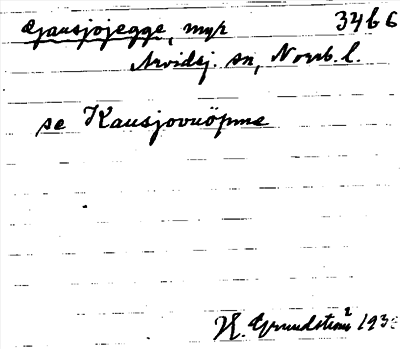 Gausjojegge, myr 3466
Arvidsj. sn, Norrb. l.
se Kausjovuöpme
H. Grundström 193